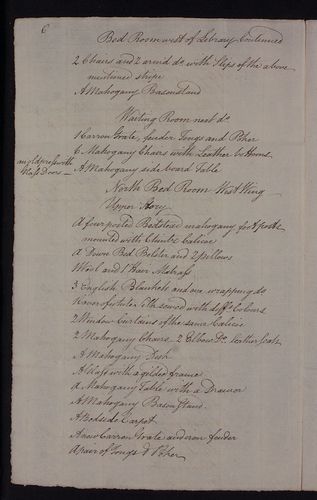 6
Bed Room west of Library Continued
2 Chairs and 2 armd do with Slips of the above
mentioned stripe
A Mahogany Basonstand
Waiting Room next do
1 Carron Grate, fender Tongs and Poker
6 Mahogany Chairs with Leather bottoms
an old press with
Glass Doors
A Mahogany side board Table
North Bed Room West Wing
Upper Story
A four posted Bedstead mahogany foot posts
mounted with Chintz Calicoe
a Down Bed Bolster and 2 pillows
Wool and 1 Hair Matrass
3 English Blankets and one wrapping do
1 Cover of white Silk sowed with diffr Colours
2 Window Curtains of the same Calicoe
2 Mahogany Chairs, 2 Elbow Do leather Seats
A Mahogany Desk
A Glass with a gilded frame
a Mahogany Table with a Drawer
A Mahogany Bason Stand
A Bedside Carpet
A new Carron Grate and iron fender
A pair of Tongs & Poker